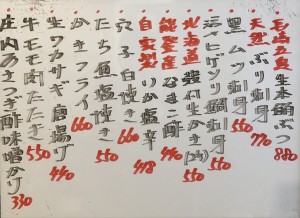 長崎五島生本鮪ぶつ 880
天然ぶり刺身 770
黒ムツ刺身 550
活ヤヒゲソリ鯛刺身
北海道 殻付生かき(2ケ)
能登産 なまこ酢 440
自家製 いか塩辛 418
穴子白焼き 660
たち魚塩焼き 550
かきフライ 660
生ワカサギ唐揚げ 440
牛モモ肉たたき 550
庄内あさつき酢味噌がけ 330